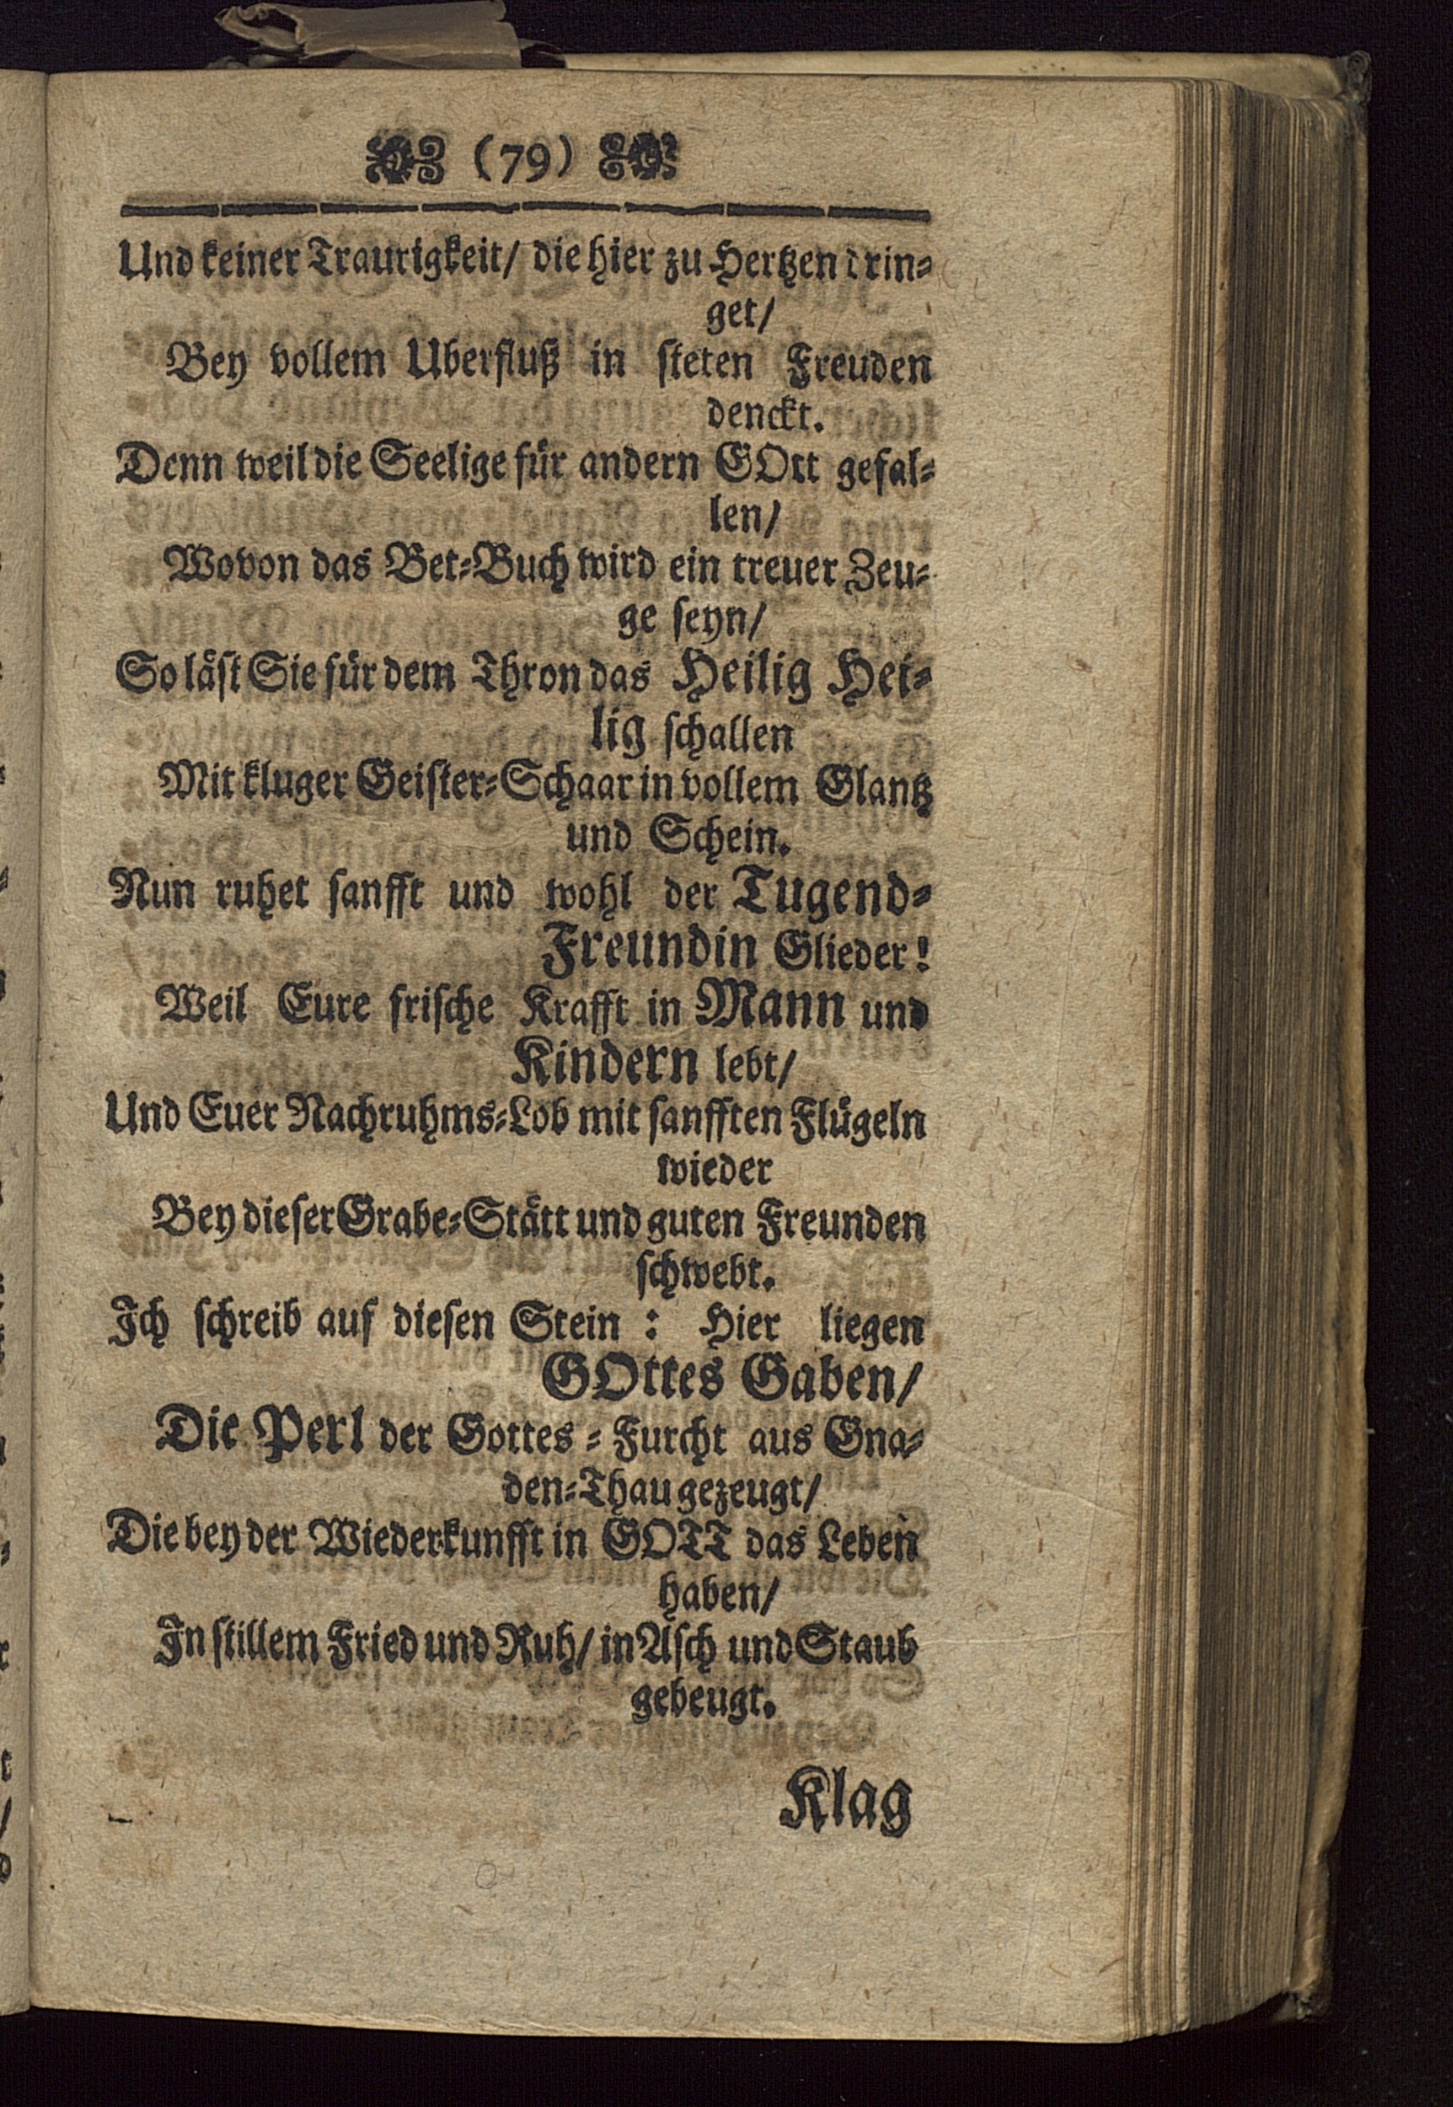 (79)
Und keiner Traurigkeit/ die hier zu Hertzen drin-
get/
Bey vollem Uberfluß in steten Freuden
denckt.
Denn weil die Seelige für andern GOtt gefal-
len/
Wovon das Bet-Buch wird ein treuer Zeu-
ge seyn/
So läst Sie für dem Thron das Heilig Hei-
lig schallen
Mit kluger Geister-Schaar in vollem Glantz
und Schein.
Nun ruhet sanfft und wohl der Tugend-
Freundin Glieder!
Weil Eure frische Krafft in Mann und
Kindern lebt/
Und Euer Nachruhms-Lob mit sanfften Flügeln
wieder
Bey dieser Grabe-Stätt und guten Freunden
schwebt.
Ich schreib auf diesen Stein: Hier liegen
GOttes Gaben/
Die Perl der Gottes-Furcht aus Gna-
den-Thau gezeugt/
Die bey der Wiederkunfft in GOTT das Leben
haben/
In stillem Fried und Ruh/ in Asch und Staub
gebeugt.
Klag